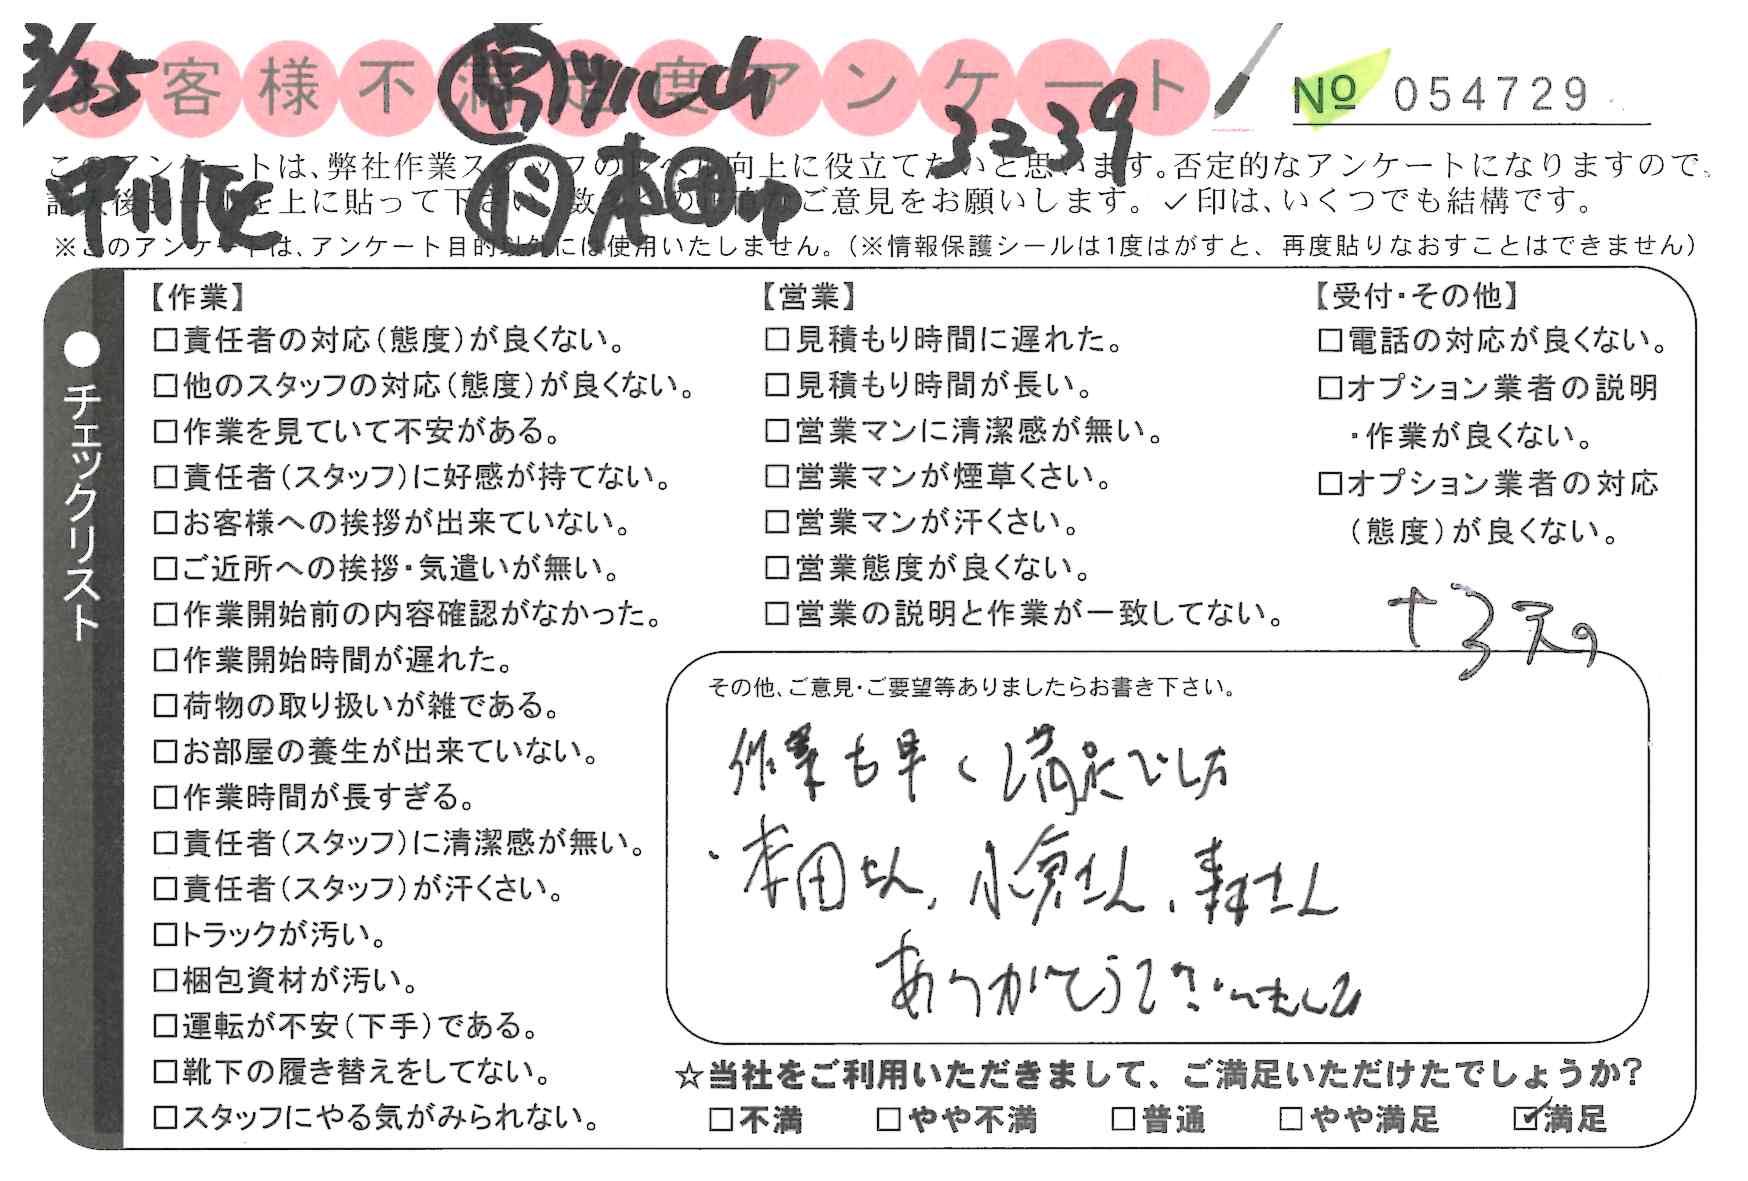 3/25
お客様不満足度アンケート
No 054729
3239
このアンケートは、弊社作業スタッフのレベル向上に役立てたいと思います。否定的なアンケートになりますので、
記入後シールを上に貼って下さい。数多くの正直なご意見をお願いします。✓印は、いくつでも結構です。
中川 本田
※このアンケートは、アンケート目的以外には使用いたしません。（※情報保護シールは1度はがすと、再度貼りなおすことはできません）
●チェックリスト
【作業】
□責任者の対応（態度）が良くない。
□他のスタッフの対応（態度）が良くない。
□作業を見ていて不安がある。
□責任者（スタッフ）に好感が持てない。
□お客様への挨拶が出来ていない。
□ご近所への挨拶・気遣いが無い。
□作業開始前の内容確認がなかった。
□作業開始時間が遅れた。
□荷物の取り扱いが雑である。
□お部屋の養生が出来ていない。
□作業時間が長すぎる。
□責任者（スタッフ）に清潔感が無い。
□責任者（スタッフ）が汗くさい。
□トラックが汚い。
□梱包資材が汚い。
□運転が不安（下手）である。
□靴下の履き替えをしてない。
□スタッフにやる気がみられない。
【営業】
□見積もり時間に遅れた。
□見積もり時間が長い。
□営業マンに清潔感が無い。
□営業マンが煙草くさい。
□営業マンが汗くさい。
□営業態度が良くない。
□営業の説明と作業が一致してない。
【受付・その他】
□電話の対応が良くない。
□オプション業者の説明
・作業が良くない。
□オプション業者の対応
（態度）が良くない。
その他、ご意見・ご要望等ありましたらお書き下さい。
作業も早く満足でした
・本田さん、小倉さん、森さん
ありがとうございました
☆当社をご利用いただきまして、ご満足いただけたでしょうか？
□不満 □やや不満 □普通 □やや満足 ☑満足